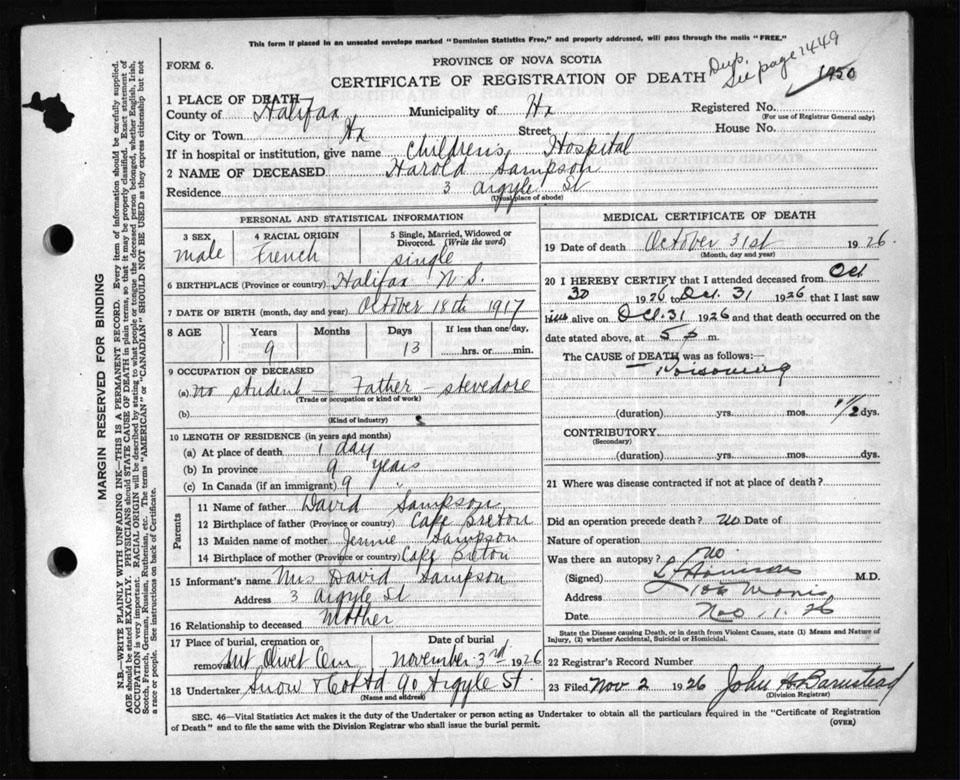 This form if placed in an unsealed envelope marked "Dominion Statistics Free," and properly addressed, will pass through the mails "FREE."
FORM 6.
PROVINCE OF NOVA SCOTIA
CERTIFICATE OF REGISTRATION OF DEATH
Dup. See page 1449
1950
1 PLACE OF DEATH
County of Halifax Municipality of Hx Registered No.
(For use of Registrar General only)
City or Town Hx Street House No.
If in hospital or institution, give name Childrens Hospital
2 NAME OF DECEASED Harold Sampson
Residence 3 Argyle St
(Usual place of abode)
PERSONAL AND STATISTICAL INFORMATION
3 SEX male
4 RACIAL ORIGIN French
5 Single, Married, Widowed or Divorced. (Write the word) single
6 BIRTHPLACE (Province or country) Halifax N.S.
7 DATE OF BIRTH (month, day and year) October 18th 1917
8 AGE Years Months Days If less than one day,
9 13 hrs. or min.
9 OCCUPATION OF DECEASED
(a) no student — Father — stevedore
(Trade or occupation or kind of work)
(b)
(Kind of industry)
10 LENGTH OF RESIDENCE (in years and months)
(a) At place of death 1 day
(b) In province 9 years
(c) In Canada (if an immigrant) 9 "
Parents
11 Name of father David Sampson
12 Birthplace of father (Province or country) Cape Breton
13 Maiden name of mother Jennie Sampson
14 Birthplace of mother (Province or country) Cape Breton
15 Informant's name Mrs David Sampson
Address 3 Argyle St
16 Relationship to deceased Mother
17 Place of burial, cremation or removal Mt Olivet Cem
Date of burial November 3rd 1926
18 Undertaker Snow & Co Ltd 90 Argyle St.
(Name and address)
MEDICAL CERTIFICATE OF DEATH
19 Date of death October 31st 1926.
(Month, day and year)
20 I HEREBY CERTIFY that I attended deceased from Oct
30 1926 to Oct. 31 1926 that I last saw
him alive on Oct. 31 1926 and that death occurred on the
date stated above, at 5 p m.
The CAUSE of DEATH was as follows:—
Poisoning
(duration) yrs. mos. 1/2 dys.
CONTRIBUTORY
(Secondary)
(duration) yrs. mos. dys.
21 Where was disease contracted if not at place of death?
Did an operation precede death? No Date of
Nature of operation
Was there an autopsy? no
(Signed) M.D.
Address Morris
Date Nov. 1. 26
State the Disease causing Death, or in death from Violent Causes, state (1) Means and Nature of Injury, (2) whether Accidental, Suicidal or Homicidal.
22 Registrar's Record Number
23 Filed Nov 2 1926 John A Barnstead
(Division Registrar)
SEC. 46—Vital Statistics Act makes it the duty of the Undertaker or person acting as Undertaker to obtain all the particulars required in the "Certificate of Registration
of Death" and to file the same with the Division Registrar who shall issue the burial permit.
(OVER)
MARGIN RESERVED FOR BINDING
N.B.—WRITE PLAINLY WITH UNFADING INK—THIS IS A PERMANENT RECORD. Every item of information should be carefully supplied.
AGE should be stated EXACTLY. PHYSICIANS should STATE CAUSE OF DEATH in plain terms, so that it may be properly classified. Exact statement of
OCCUPATION is very important. RACIAL ORIGIN will be described by stating to what people or tongue the deceased person belonged, whether English, Irish,
Scotch, French, German, Russian, Ruthenian, etc. The terms "AMERICAN" or "CANADIAN" SHOULD NOT BE USED as they express citizenship but not
a race or people. See instructions on back of Certificate.